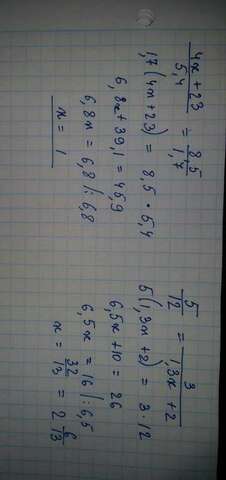 (4x + 23)/5,4 = 8,5/1,7
1,7 (4x + 23) = 8,5 · 5,4
6,8x + 39,1 = 45,9
6,8x = 6,8 /: 6,8
x = 1
5/12 = 3/(1,3x + 2)
5(1,3x + 2) = 3 · 12
6,5x + 10 = 26
6,5x = 16 /: 6,5
x = 32/13 = 2 6/13